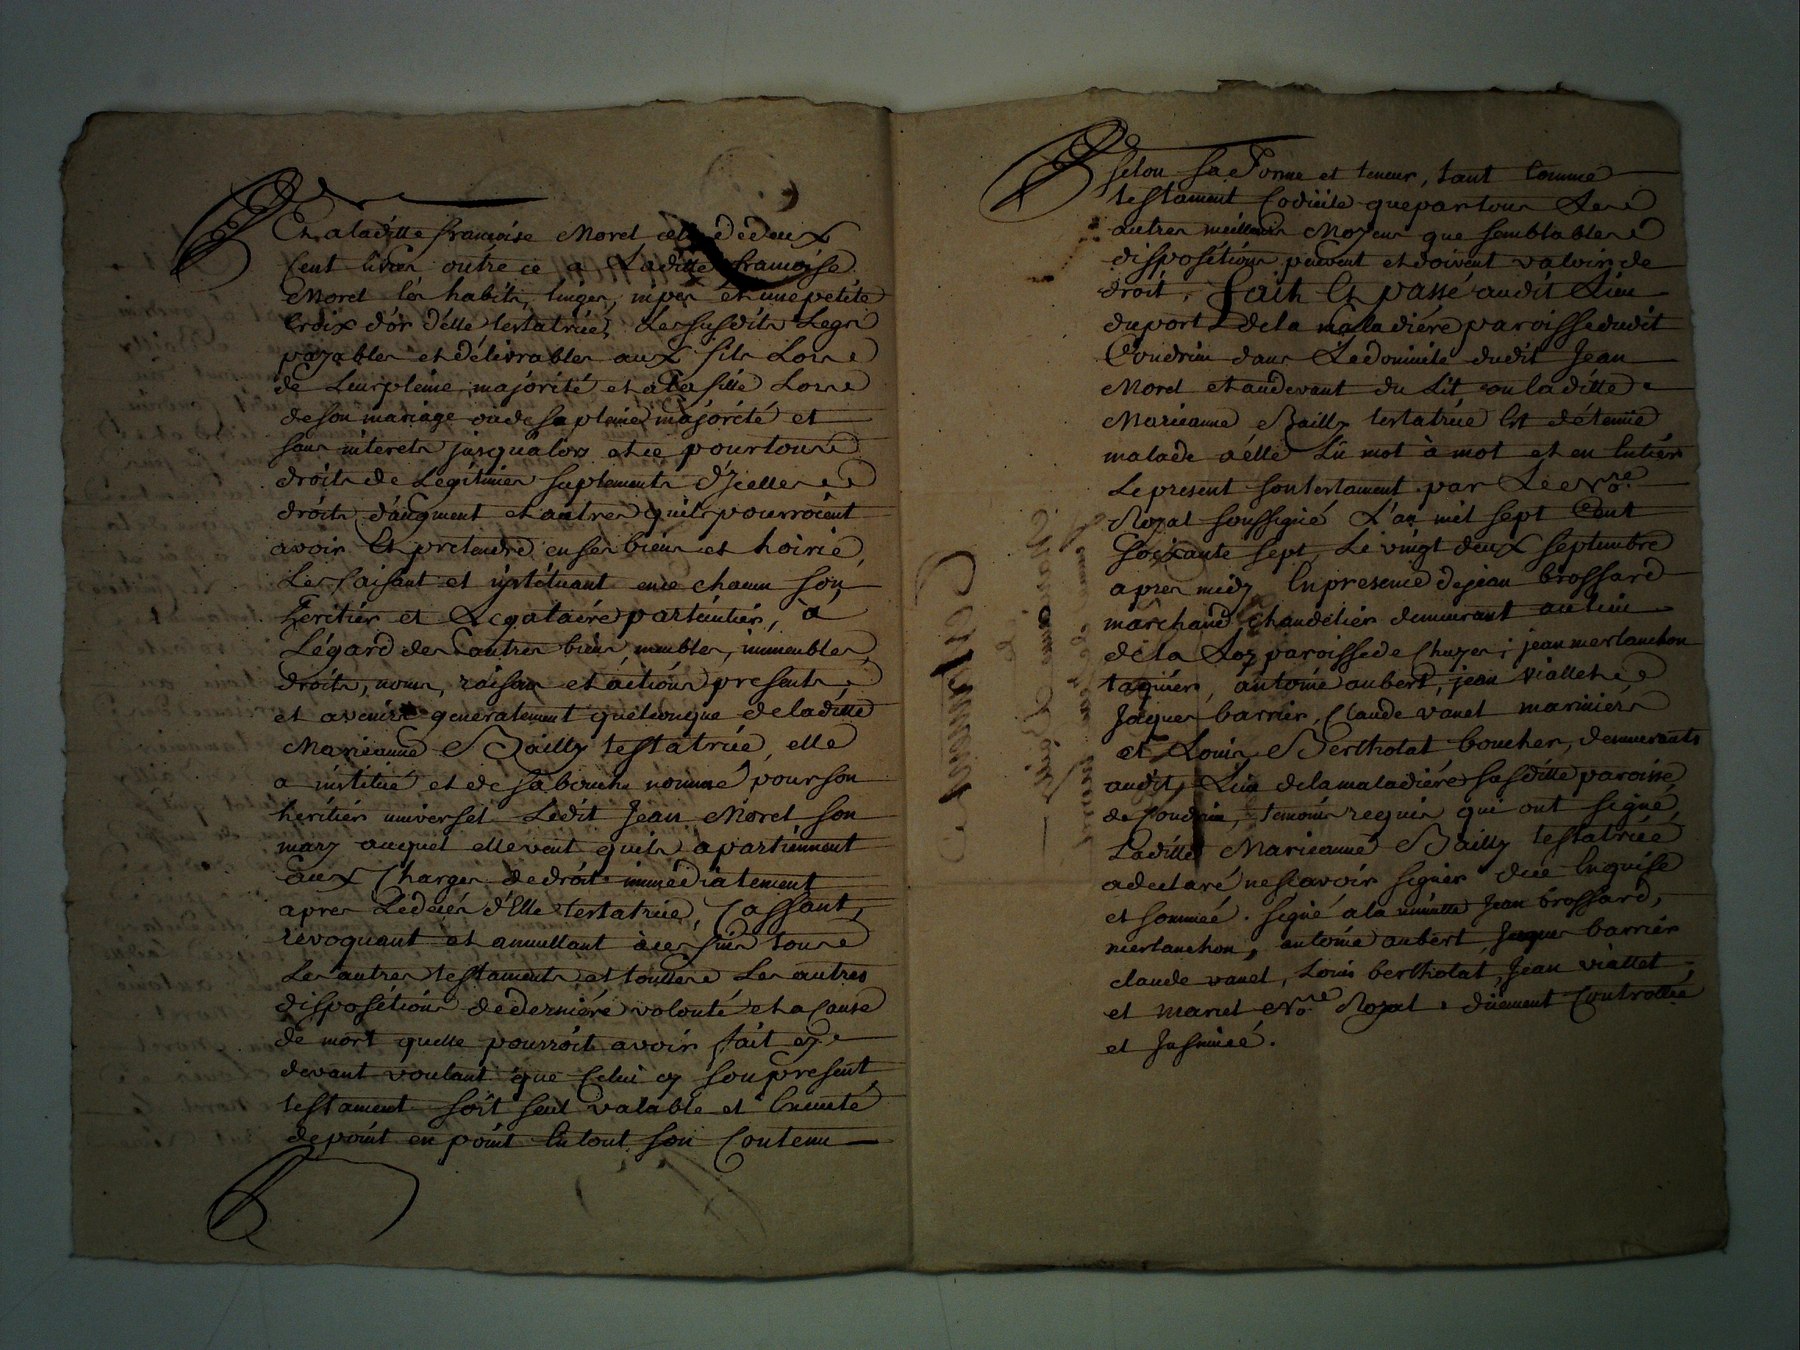 Et a laditte francoise Morel celle de deux
Cent livres outre ce a Laditte francoise
Morel les habits, linges, nipes et une petite
Croix d'or d'elle testatrice, Les susdits Legs
payables et délivrables aux fils Lors
de Leur pleine majorité et a La fille Lors
de son mariage ou de sa pleine majorité et
sans interets jusqualors et ce pour tous
droits de Légitimes suplements d'Jcelles
droits d'augment et autres quils pourroient
avoir Et pretendre en ses biens et hoirie,
Les faisant et instituant en ce chacun son
heritier et Legataire particulier, à
Légard des autres biens meubles, immeubles,
droits, noms, raisons et actions presents,
et avenir generalement quelconque de laditte
Marieanne Bailly testatrice, elle
a institué et de sa bouche nommé pour son
héritier universel Ledit Jean Morel son
mary auquel elle veut quils apartiennent
aux Charges de droit immédiatement
apres Le décés d'Elle testatrice, Cassant,
révoquant et annullant à ces fins tous
Les autres testaments et touttes Les autres
disposition de derniére volonté et a Cause
de mort quelle pourroit avoir fait cy
devant voulant que Celui cy son present
testament soit seul valable et Executé
de point en point En tout son Contenu
selon sa forme et teneur, tant Comme
testament Codicile que par tous Les
autres meilleurs Moyens que semblables
dispositions peuvent et doivent valoir de
droit, fait Et passé audit Lieu
du port de la maladiére paroisse dudit
Condrieu dans Le domicile dudit Jean
Morel et audevant du Lit ou laditte
Marieanne Bailly testatrice Est détenue
malade a elle Lu mot à mot et en Entier
Le present son testament par Le Nore
Royal soussigné L'an mil sept Cent
soixante sept, Le vingt deux septembre
apres midy En presence de jean brossard
marchand Chandelier demeurant au lieu
de la Loy paroisse de Chuyer; jean merlanchon
taquier, antoine aubert, jean viallet
Jaques barrier, Claude vanel mariniers
et Louis Bertholat boucher, demeurants
audit Lieu de la maladiére susditte paroisse
de Condrieu, temoins requis qui ont signé,
Laditte Marieanne Bailly testatrice
a declaré ne scavoir signer de ce Enquise
et sommeé. signé a la minutte Jean brossard,
merlanchon, antoine aubert, Jaques barrier
claude vanel, Louis bertholat, Jean viallet,
et Nore Royal. düement Controllée
et Jnsinueé.